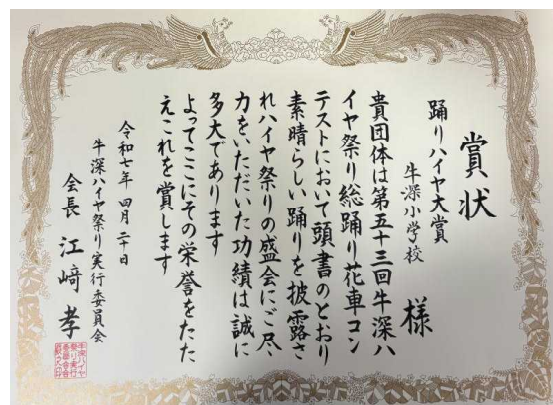 賞状
踊りハイヤ大賞
牛深小学校 様
貴団体は第五十三回牛深ハ
イヤ祭り総踊り花車コン
テストにおいて頭書のとおり
素晴らしい踊りを披露さ
れハイヤ祭りの盛会にご尽
力をいただいた功績は誠に
多大であります
よってここにその栄誉をたた
えこれを賞します
令和七年 四月二十日
牛深ハイヤ祭り実行委員会
会長 江﨑 孝